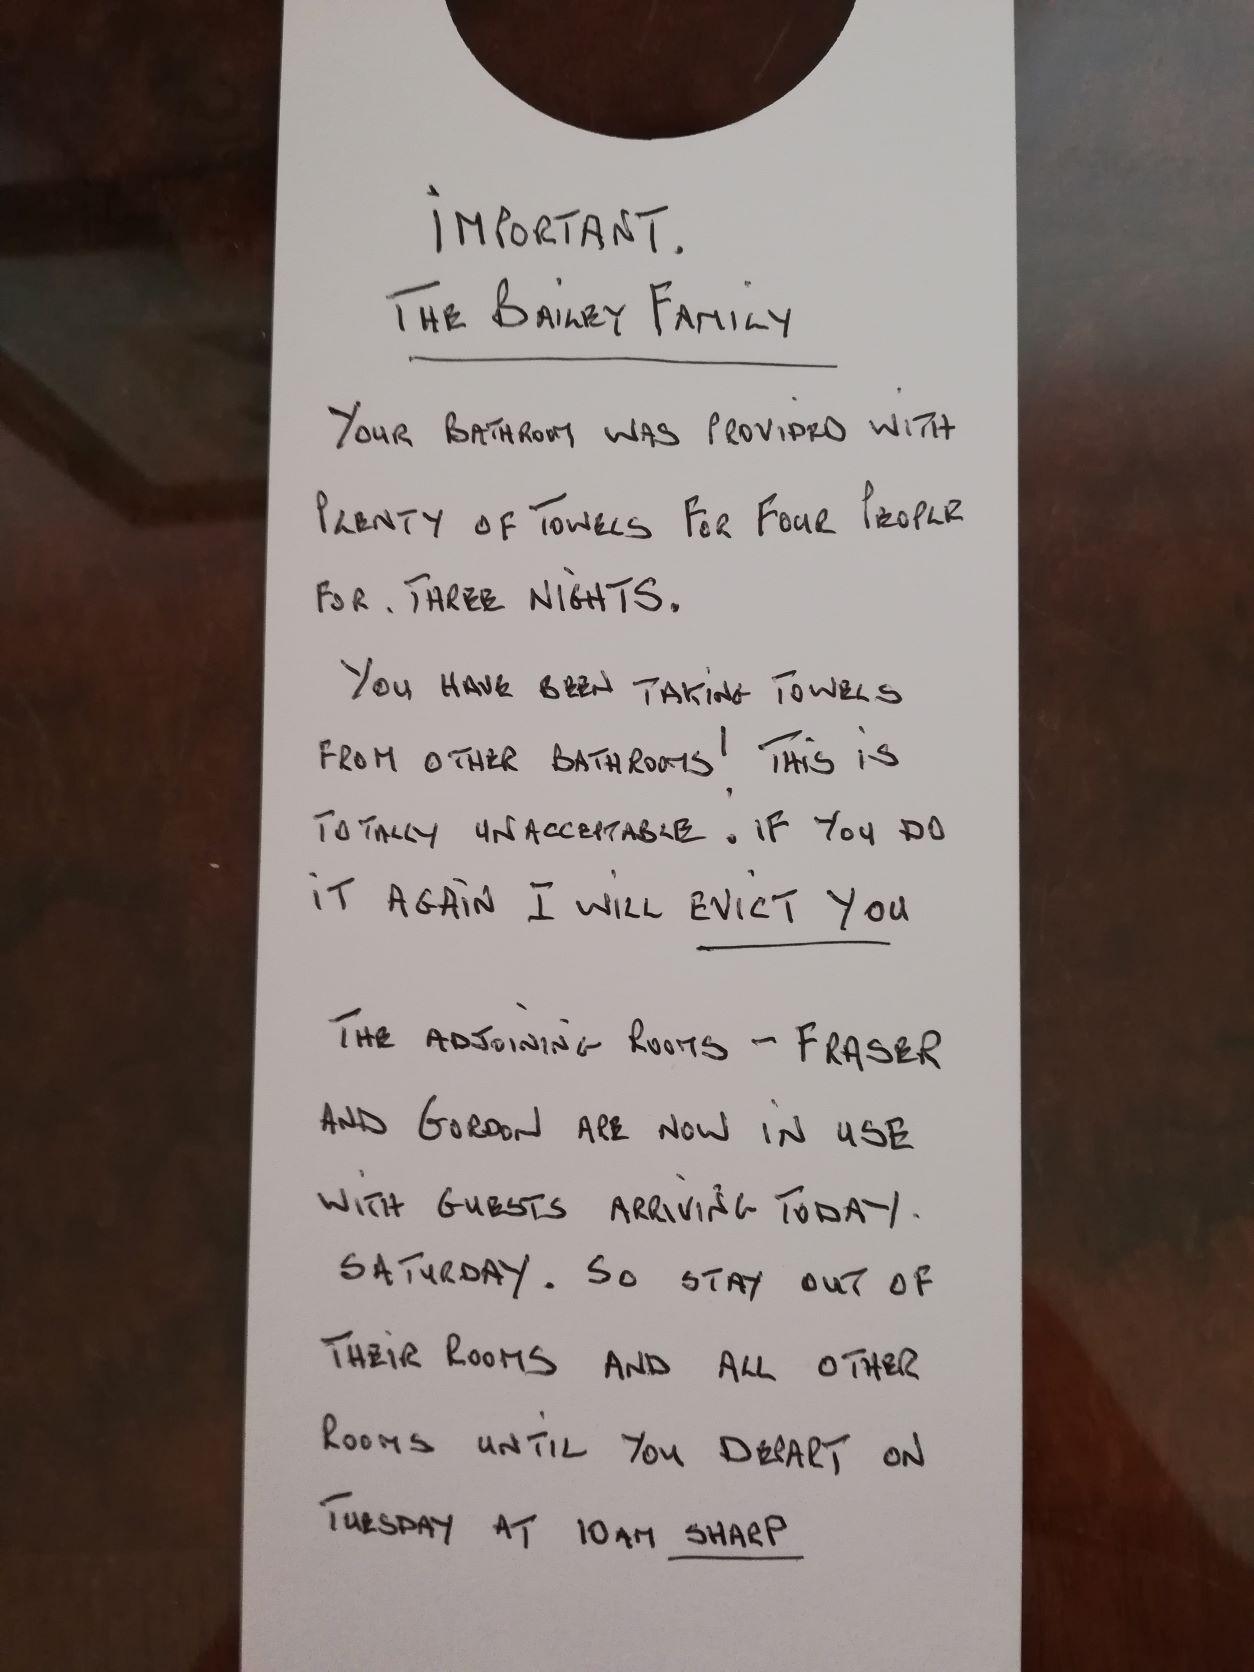 IMPORTANT.
THE BAILEY FAMILY
YOUR BATHROOM WAS PROVIDED WITH
PLENTY OF TOWELS FOR FOUR PEOPLE
FOR. THREE NIGHTS.
YOU HAVE BEEN TAKING TOWELS
FROM OTHER BATHROOMS! THIS IS
TOTALLY UNACCEPTABLE. IF YOU DO
IT AGAIN I WILL EVICT YOU
THE ADJOINING ROOMS - FRASER
AND GORDON ARE NOW IN USE
WITH GUESTS ARRIVING TODAY.
SATURDAY. SO STAY OUT OF
THEIR ROOMS AND ALL OTHER
ROOMS UNTIL YOU DEPART ON
TUESDAY AT 10AM SHARP